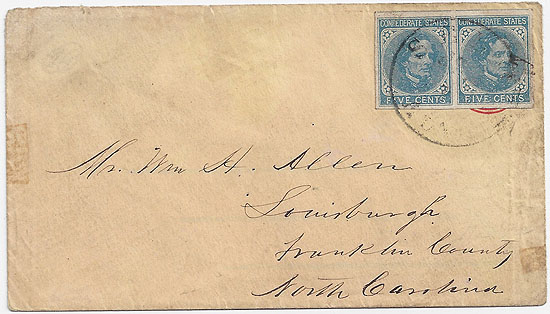 CONFEDERATE STATES CONFEDERATE STATES
FIVE CENTS FIVE CENTS
Mr. Wm H. Allen
Louisburgh
Franklin County
North Carolina